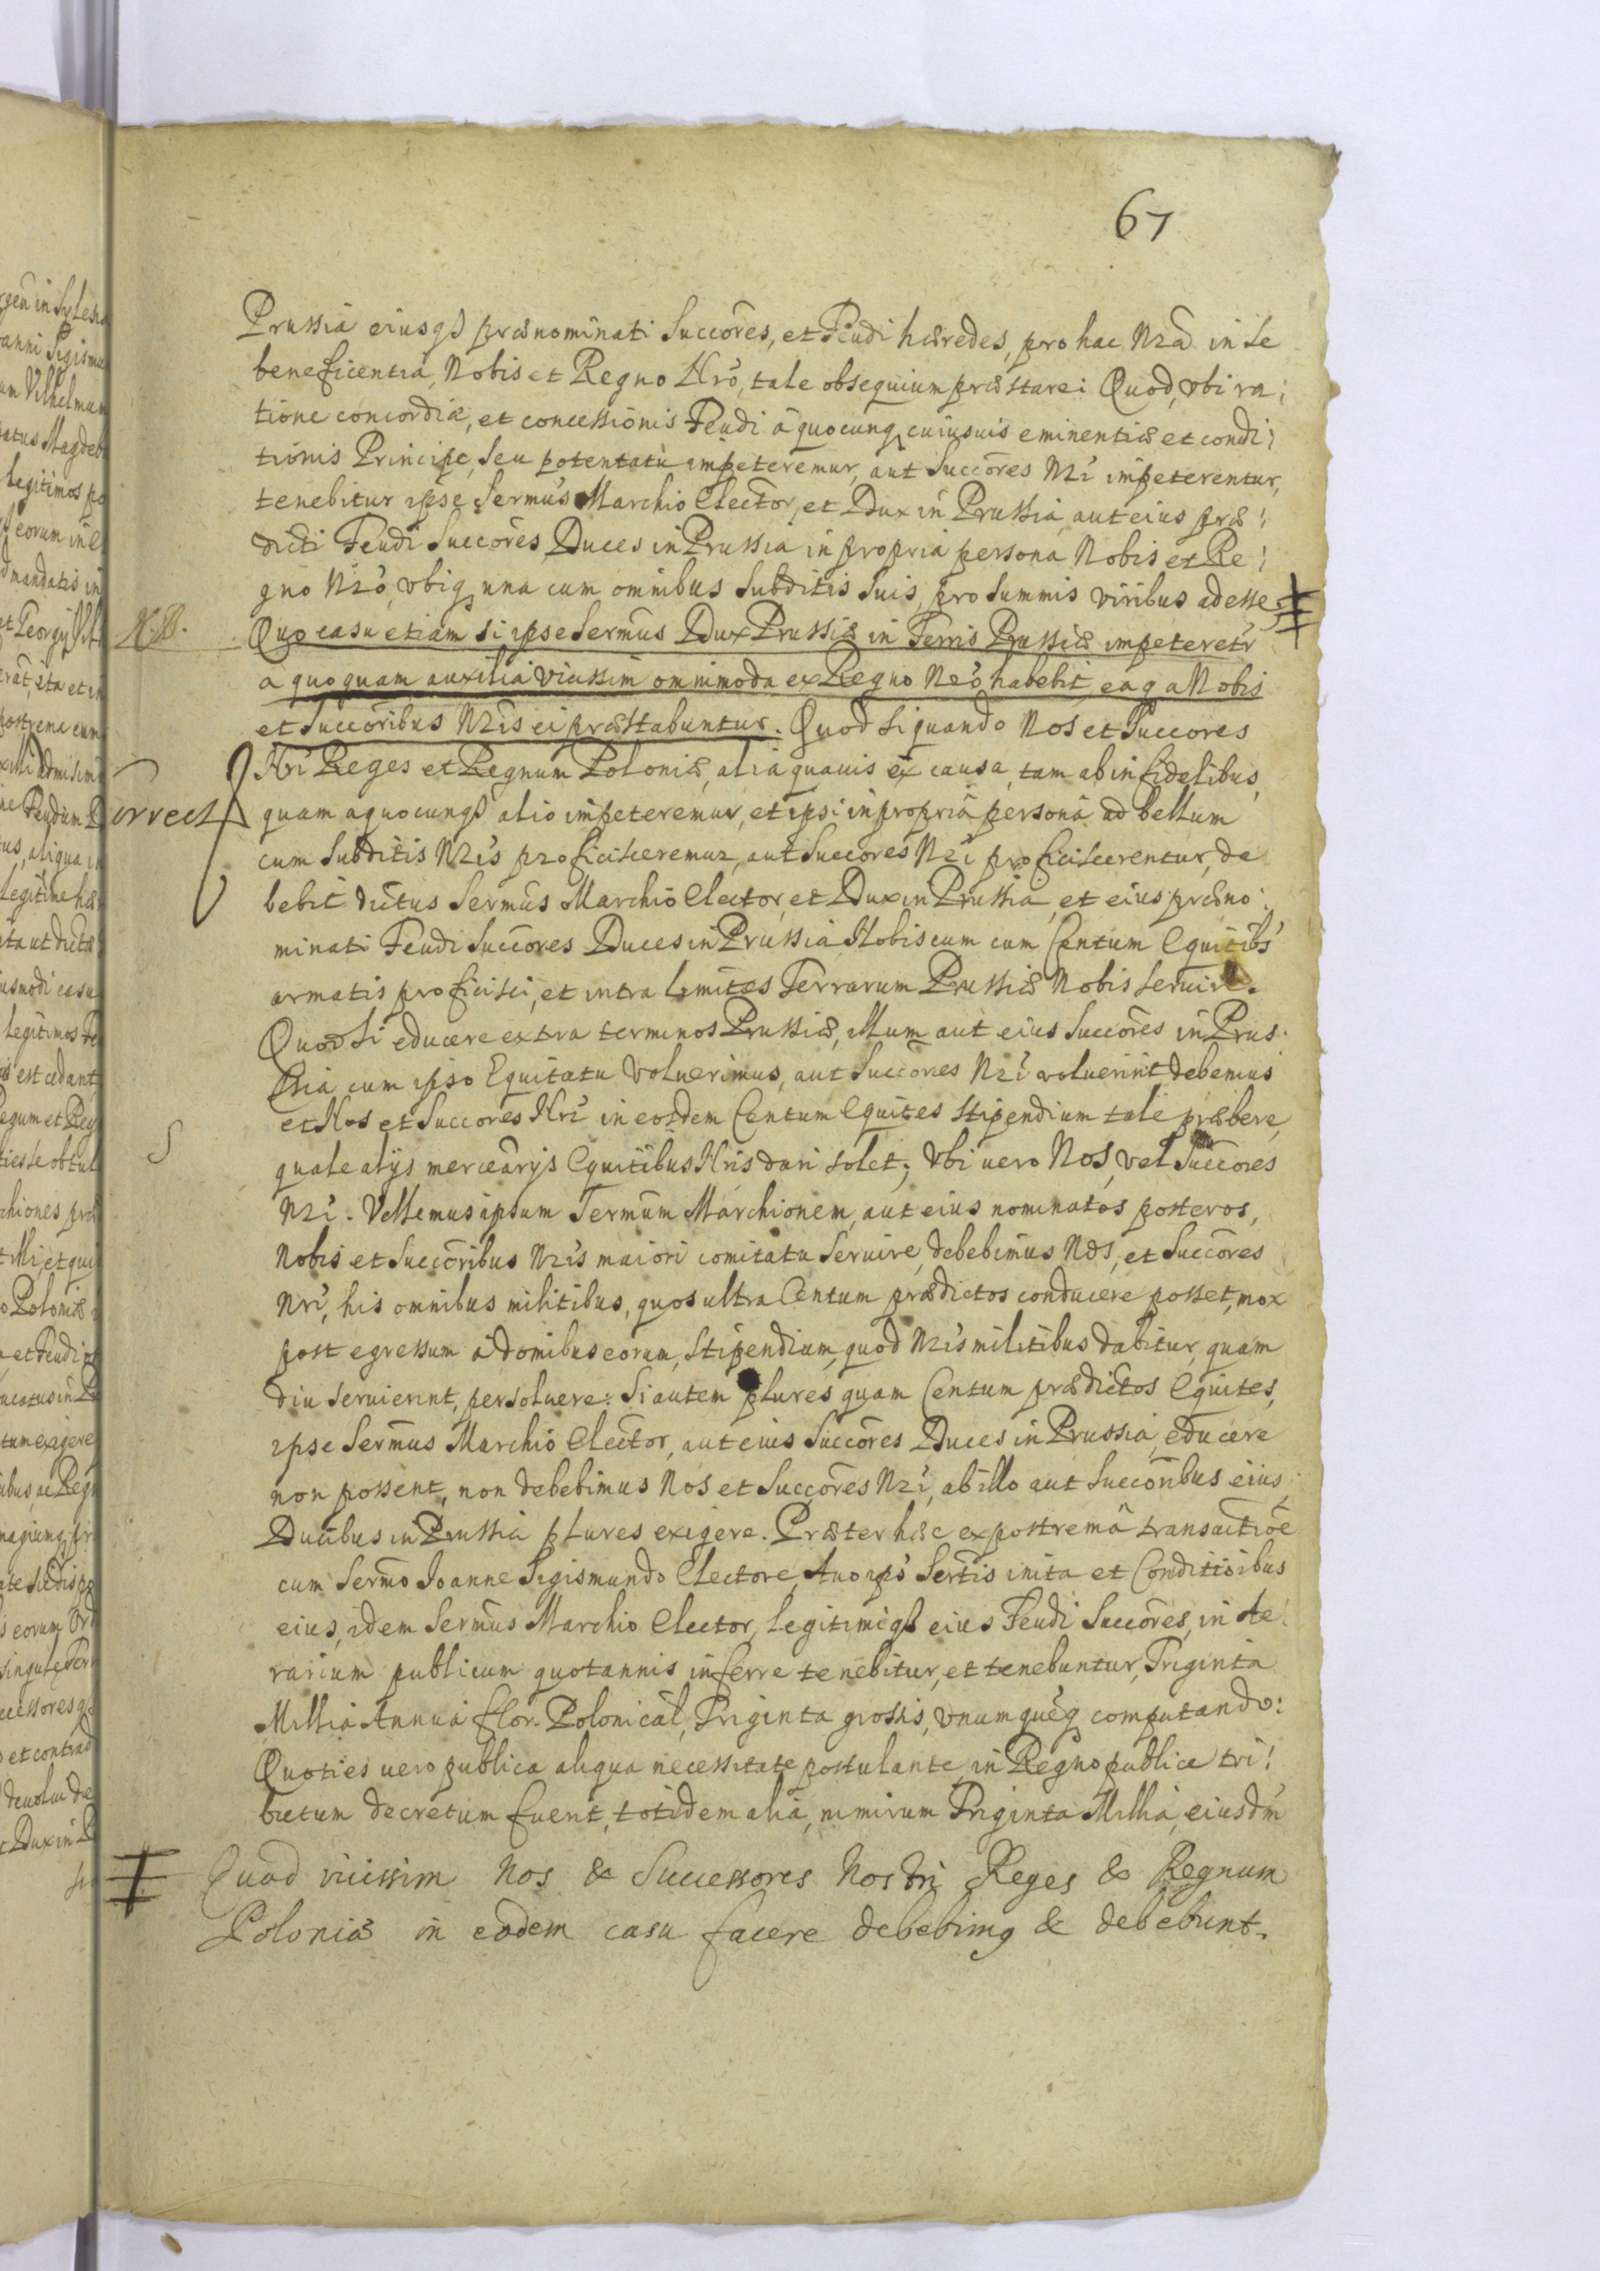 67
Prussia eiusqȝ prænominati Succōres, et Feudi hæredes, pro hac Nr̄a in se
beneficentia, Nobis et Regno Nr̄o, tale obsequium præstare: Quod, vbi ra¦
tione concordiæ, et concessionis Feudi à quocunqȝ cuiusuis eminentiæ et condi¦
tionis Principe, seu potentatu impeteremur, aut Succōres Nr̄i impeterentur,
tenebitur ipse Sermūs Marchio Elector, et Dux in Prussia, aut eius præ¦
dicti Feudi Succōres, Duces in Prussia in propria persona Nobis et Re¦
gno Nr̄o, vbiqȝ una cum omnibus Subditis Suis, pro Summis viribus adesse.
N.B. Quo casu etiam si ipse Sermūs Dux Prussiæ in Terris Prussiæ impeteretr̄
a quoquam auxilia vicissim omnimoda ex Regno Nr̄o habebit, eaqȝ a Nobis
et Succōribus Nr̄is ei præstabuntur. Quod si quando Nos et Succores
Nr̄i Reges et Regnum Poloniæ, alia quauis ex causa, tam ab infidelibus,
quam a quocunqȝ alio impeteremur, et ipsi in propria persona ad bellum
cum Subditis Nr̄is proficisceremur, aut Succores Nr̄i proficiscerentur, de
bebit dictus Sermūs Marchio Elector, et Dux in Prussia, et eius præno¦
minati Feudi Succōres Duces in Prussia Nobiscum cum Centum Equitibs
armatis proficisci, et intra limites Terrarum Prussiæ Nobis Seruire.
Quod si educere extra terminos Prussiæ, illum aut eius Succōres in Prus¦
sia cum ipso Equitatu Voluerimus, aut Succōres Nr̄i voluerint debemus
et Nos et Succores Nr̄i in eosdem Centum Equites stipendium tale præbere,
quale alijs mercēarijs Equitibus Nr̄is dari solet; Vbi uero Nos, vel Succōres
Nr̄i. Vellemus ipsum Sermum Marchionem, aut eius nominatos posteros,
Nobis et Succōribus Nr̄is maiori comitatu Seruire, debebimus Nos, et Succōres
Nr̄i, his omnibus militibus, quos ultra Centum prædictos conducere posset, mox
post egressum a domibus eorum, Stipendium, quod Nr̄is militibus dabitur, quam
diu seruierint, persoluere: Si autem plures quam Centum prædictos Equites,
ipse Sermūs Marchio Elector, aut eius Succōres Duces in Prussia, educere
non possent, non debebimus Nos et Succōres Nr̄i, ab illo aut Succōribus eius
Ducibus in Prussia plures exigere. Præter hæc ex postrema transactiōe
cum Sermo Ioanne Sigismundo Electore, inita et Conditiōibus
eius, idem Sermūs Marchio Elector, legitimiqȝ eius Feudi Succōres, in Ae¦
rarium publicum quotannis inferre tenebitur, et tenebuntur, Triginta
Millia Annua flor. Polonical, Triginta grossis, vnumquēqȝ computando:
Quoties uero publica aliqua necessitate postulante, in Regno publice tri¦
butum decretum fuerit, totidem alia, nimirum Triginta Millia, eiusdm̄
Quod vicissim Nos & Successores Nostri Reges & Regnum
Poloniæ in eodem casu facere debebimȝ & debebunt.